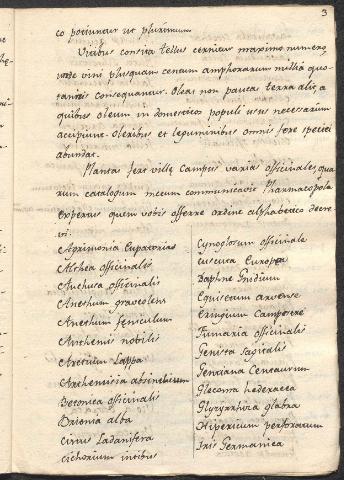 3
co potiuntur ut plurimum.
Vitibus consita tellus cernitur maximo numero
unde vini plusquam centum amphorarum millia quo-
tannis consequantur. Oleas non paucas terra alit, a
quibus oleum in domesticos populi usus necessarium
accipiunt. Oleribus et leguminibus omnis fere speciei
abundat.
Plantas fert villę Campus varias officinales, qua
rum catalogum mecum communicavit Pharmacopola
expertus quem vobis offerre ordine alphabetico decre-
vi.
Agrimonia Eupatorias
Althea officinalis
Anchusa officinalis
Anethum graveolens
Anethum feniculum
Anthemis nobilis
Arctium Lappa
Arthemisia absinthium
Betonica officinalis
Brionia alba
Cistus Ladanifera
Cichorium intibus
Cynoglosum officinale
Cuscuta Europea
Daphne Gnidium
Equisetum arvense
Eringium Campestre
Fumaria officinalis
Genista Sagitalis
Gentiana Centaurium
Glecoma hederacea
Glyzyrrhiza glabra
Hipericum perforatum
Iris Germanica